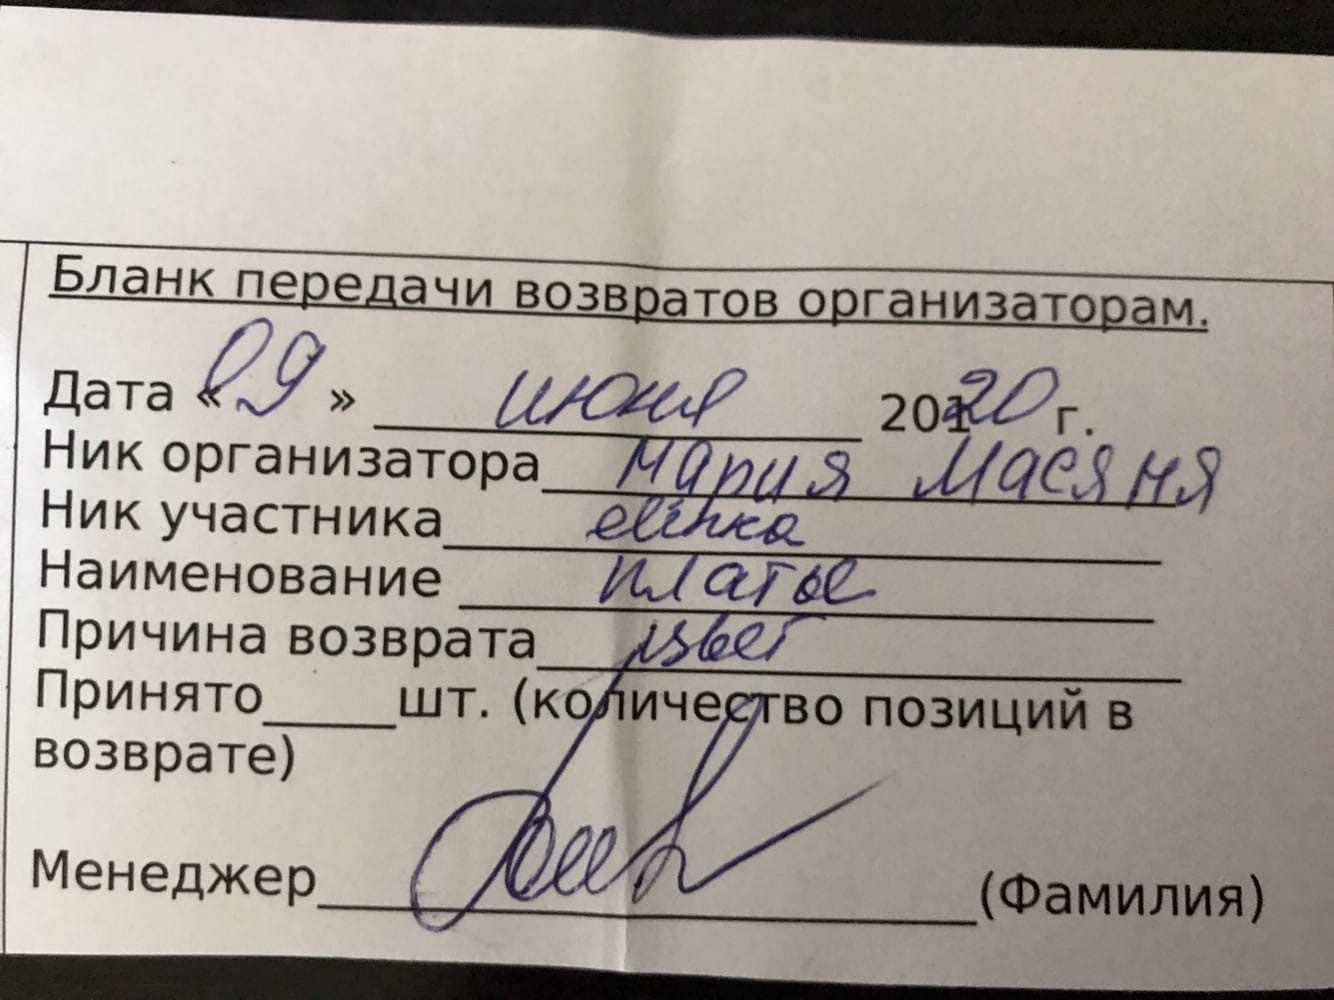 Бланк передачи возвратов организаторам.
Дата «09» июня 2020 г.
Ник организатора Мария Масяня
Ник участника
Наименование платье
Причина возврата цвет
Принято_____шт. (количество позиций в
возврате)
Менеджер (Фамилия)